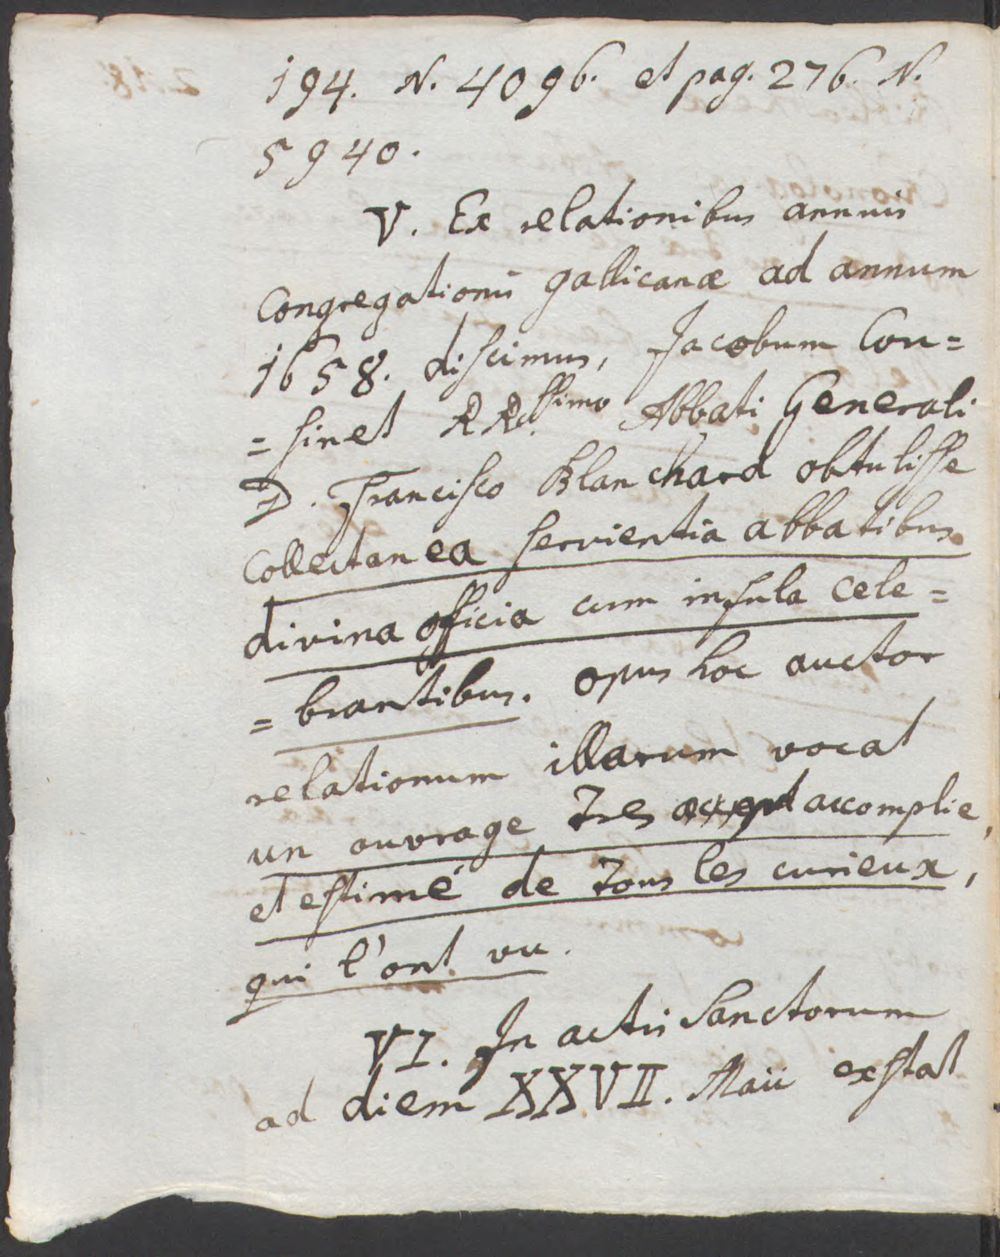 194. N. 4096. et pag. 276. N.
5940.
V. Ex relationibus annuis
Congregationis gallicanæ ad annum
1658. discimus, Jacobum Cou=
=sinet RR.ssimo Abbati Generali
D. Francisco Blanchard obtulisse
Collectanea servientia abbatibus
divina officia cum infula cele=
=brantibus. opus hoc auctor
relationum illarum vocat
un ouvrage tres accomplie,
et estimé de tous les curieux,
qui l'ont vu.
VI. In actis Sanctorum
ad diem XXVII. Maii exstat